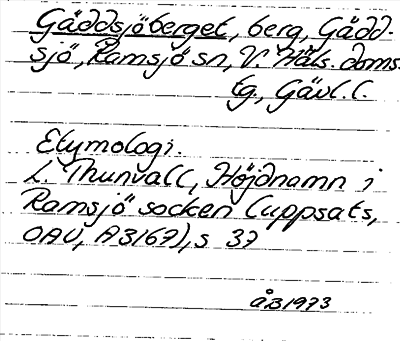 Gäddsjöberget, berg, Gädd-
sjö, Ramsjö sn, V. Häls. doms.
tg., Gävl. l.
Etymologi.
L. Thunvall, Höjdnamn i
Ramsjö socken (uppsats,
OAU, A3167), s 37
ÅB 1973